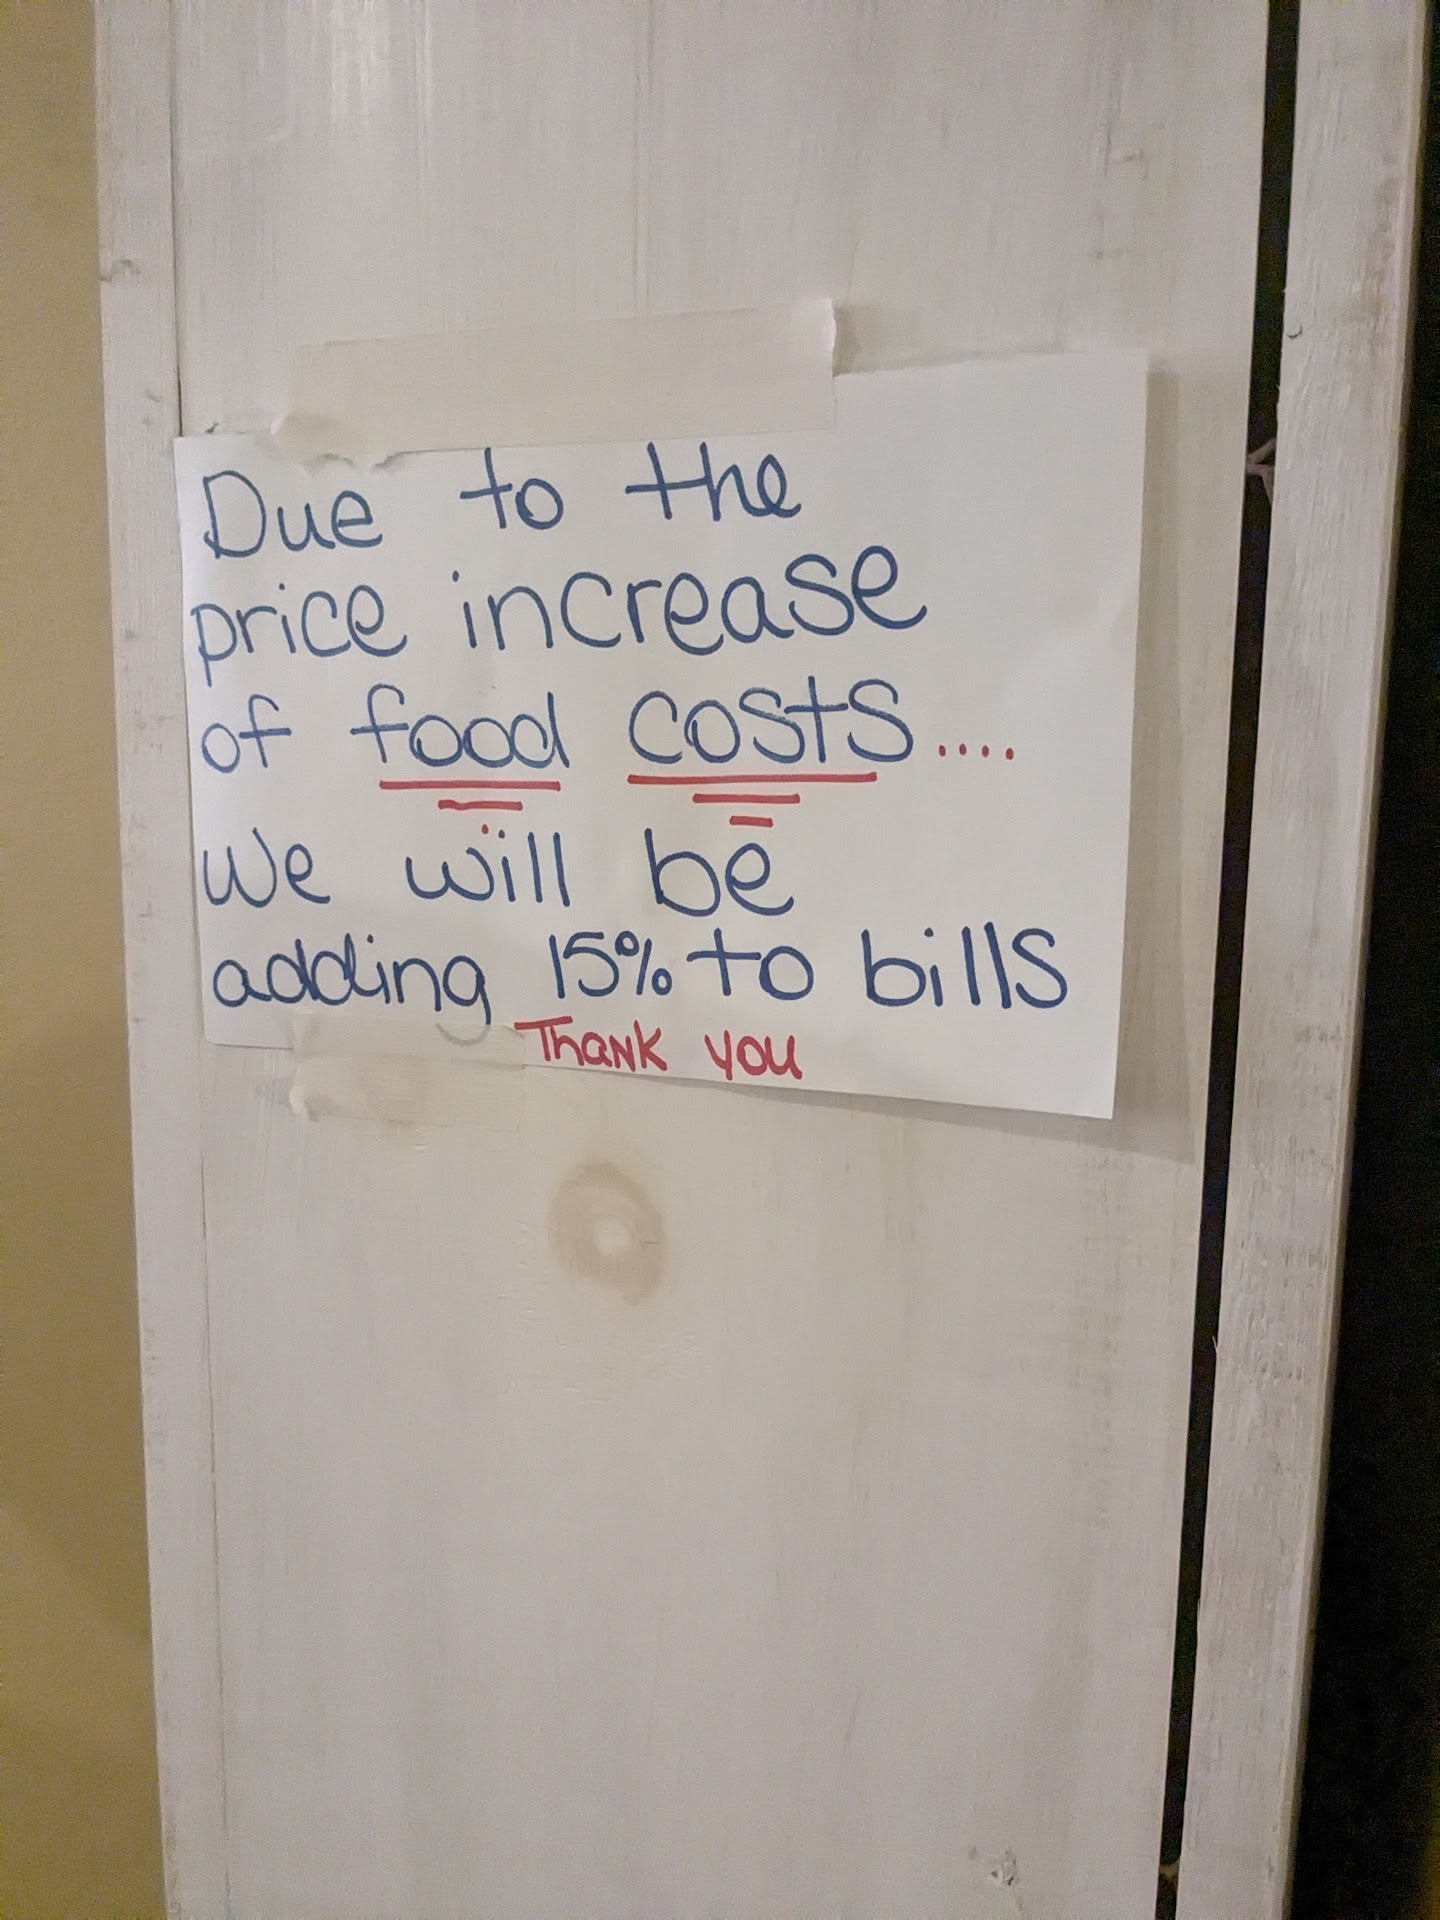 Due to the
price increase
of food costs....
We will be
adding 15% to bills
Thank you